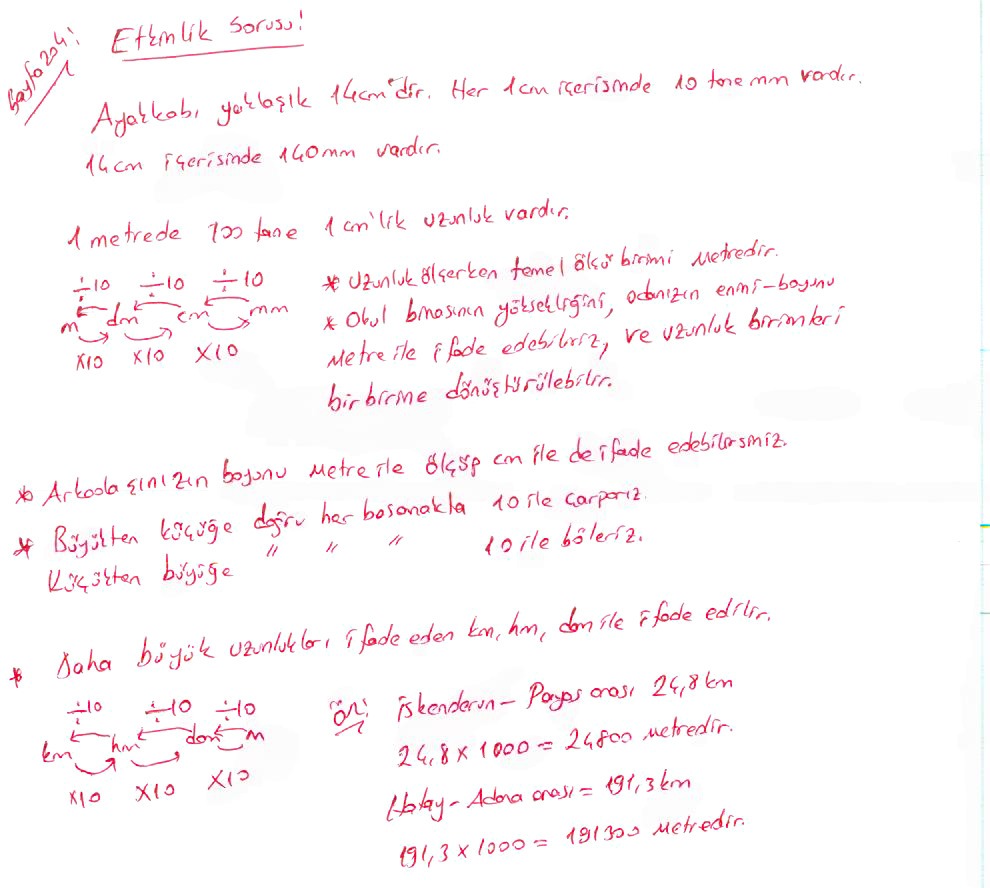 Sayfa 204:
Etkinlik Sorusu!
Ayakkabı yaklaşık 14cm'dir. Her 1cm içerisinde 10 tane mm vardır.
14cm içerisinde 140mm vardır.
1 metrede 100 tane 1cm'lik uzunluk vardır.
÷10 ÷10 ÷10
m dm cm mm
x10 x10 x10
* Uzunluk ölçerken temel ölçü birimi Metredir.
* Okul binasının yüksekliğini, odanızın enini-boyunu
Metre ile ifade edebiliriz, ve uzunluk birimleri
birbirine dönüştürülebilir.
* Arkadaşınızın boyunu Metre ile ölçüp cm ile de ifade edebilirsiniz.
* Büyükten küçüğe doğru her basamakta 10 ile çarparız.
Küçükten büyüğe " " " 10 ile böleriz.
* Daha büyük uzunlukları ifade eden km, hm, dam ile ifade edilir.
÷10 ÷10 ÷10
km hm dam m
x10 x10 x10
Ör: İskenderun - Payas arası 24,8 km
24,8 x 1000 = 24800 Metredir.
Hatay - Adana arası = 191,3 km
191,3 x 1000 = 191300 Metredir.